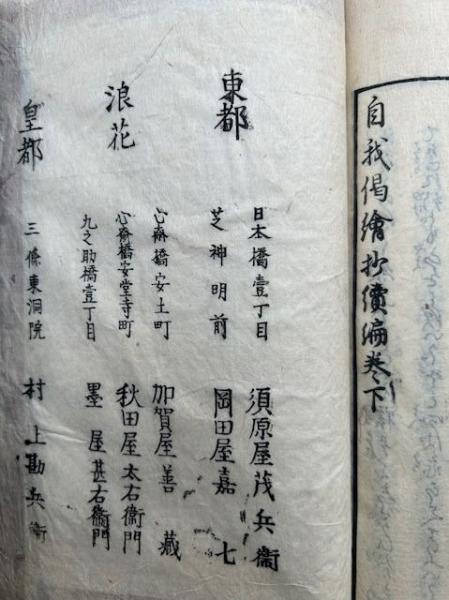 自我偈繪抄續編卷下
東都
日本橋壹丁目 須原屋茂兵衞
芝神明前 岡田屋嘉七
浪花
心斎橋安土町 加賀屋善藏
心斎橋安堂寺町 秋田屋太右衞門
九之助橋壹丁目 墨屋甚右衞門
皇都
三條東洞院 村上勘兵衞